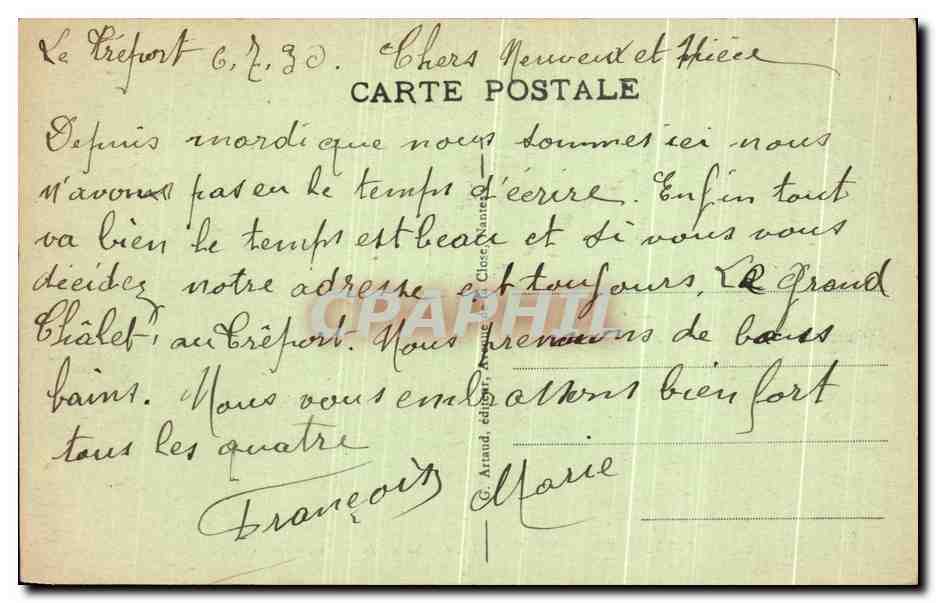 Le Tréport 6.7.30. Chers Neuveux et Nièce
CARTE POSTALE
Depuis mardi que nous sommes ici nous
n'avons pas eu le temps d'écrire. Enfin tout
va bien le temps est beau et si vous vous
décidez notre adresse est toujours, Le Grand
Châlet, au Tréport. Nous prenons de bons
bains. Nous vous embrassons bien fort
tous les quatre
François Marie
G. Artaud, éditeur, Avenue de la Close, Nantes
CPAPHIL